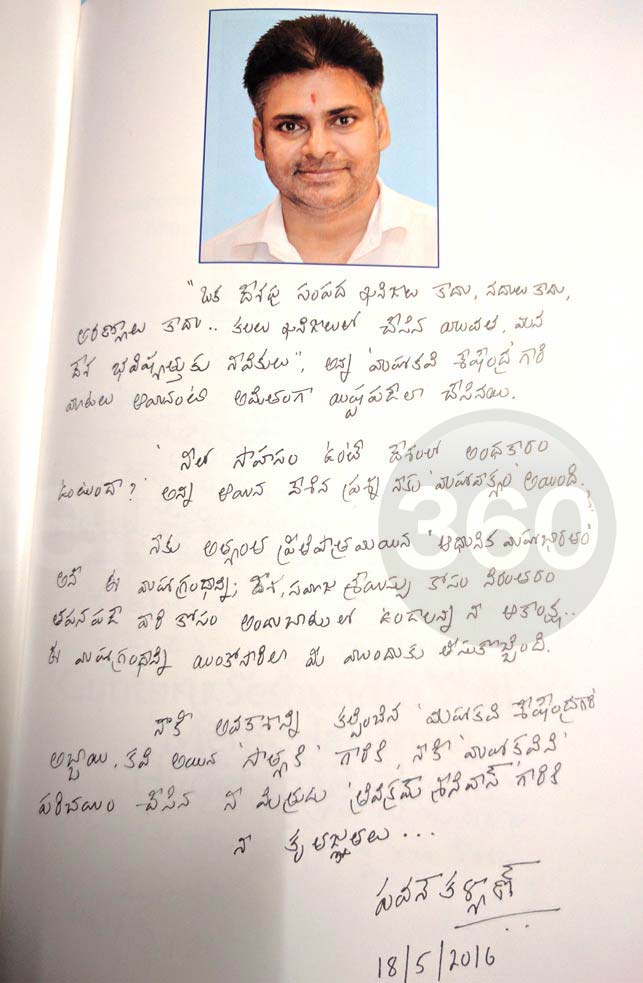 "ఒక దేశపు సంపద ఖనిజాలు కాదు, నదులు కాదు,
అరణ్యాలు కాదు.. కలలు ఖనిజాలతో చేసిన యువత, మన
దేశ భవిష్యత్తుకు నావికులు", అన్న 'మహాకవి శేషేంద్ర' గారి
మాటలు ఆయనంటే అమితంగా యిష్టపడేలా చేసినయి.
'నీలో సాహసం ఉంటే దేశంలో అంధకారం
ఉంటుందా?' అన్న ఆయన వేసిన ప్రశ్న నాకు 'మహావాక్యం' అయింది.
నేను అత్యంత ప్రీతిపాత్రమయిన 'ఆధునిక మహాభారతం'
అనే ఈ మహాగ్రంథాన్ని; దేశ, సమాజ శ్రేయస్సు కోసం నిరంతరం
తపనపడే వారి కోసం అందుబాటులో ఉండాలన్న నా ఆకాంక్ష..
ఈ మహాగ్రంథాన్ని యింకోసారిలా మీ ముందుకు తీసుకొచ్చింది.
నాకీ అవకాశాన్ని కల్పించిన 'మహాకవి శేషేంద్ర' గారి
అబ్బాయి, కవి అయిన 'సాత్యకి' గారికి, నాకీ 'మహాకవిని'
పరిచయం చేసిన నా మిత్రుడు 'త్రివిక్రమ్ శ్రీనివాస్' గారికి
నా కృతజ్ఞతలు ...
పవన్ కళ్యాణ్
18/5/2016
360